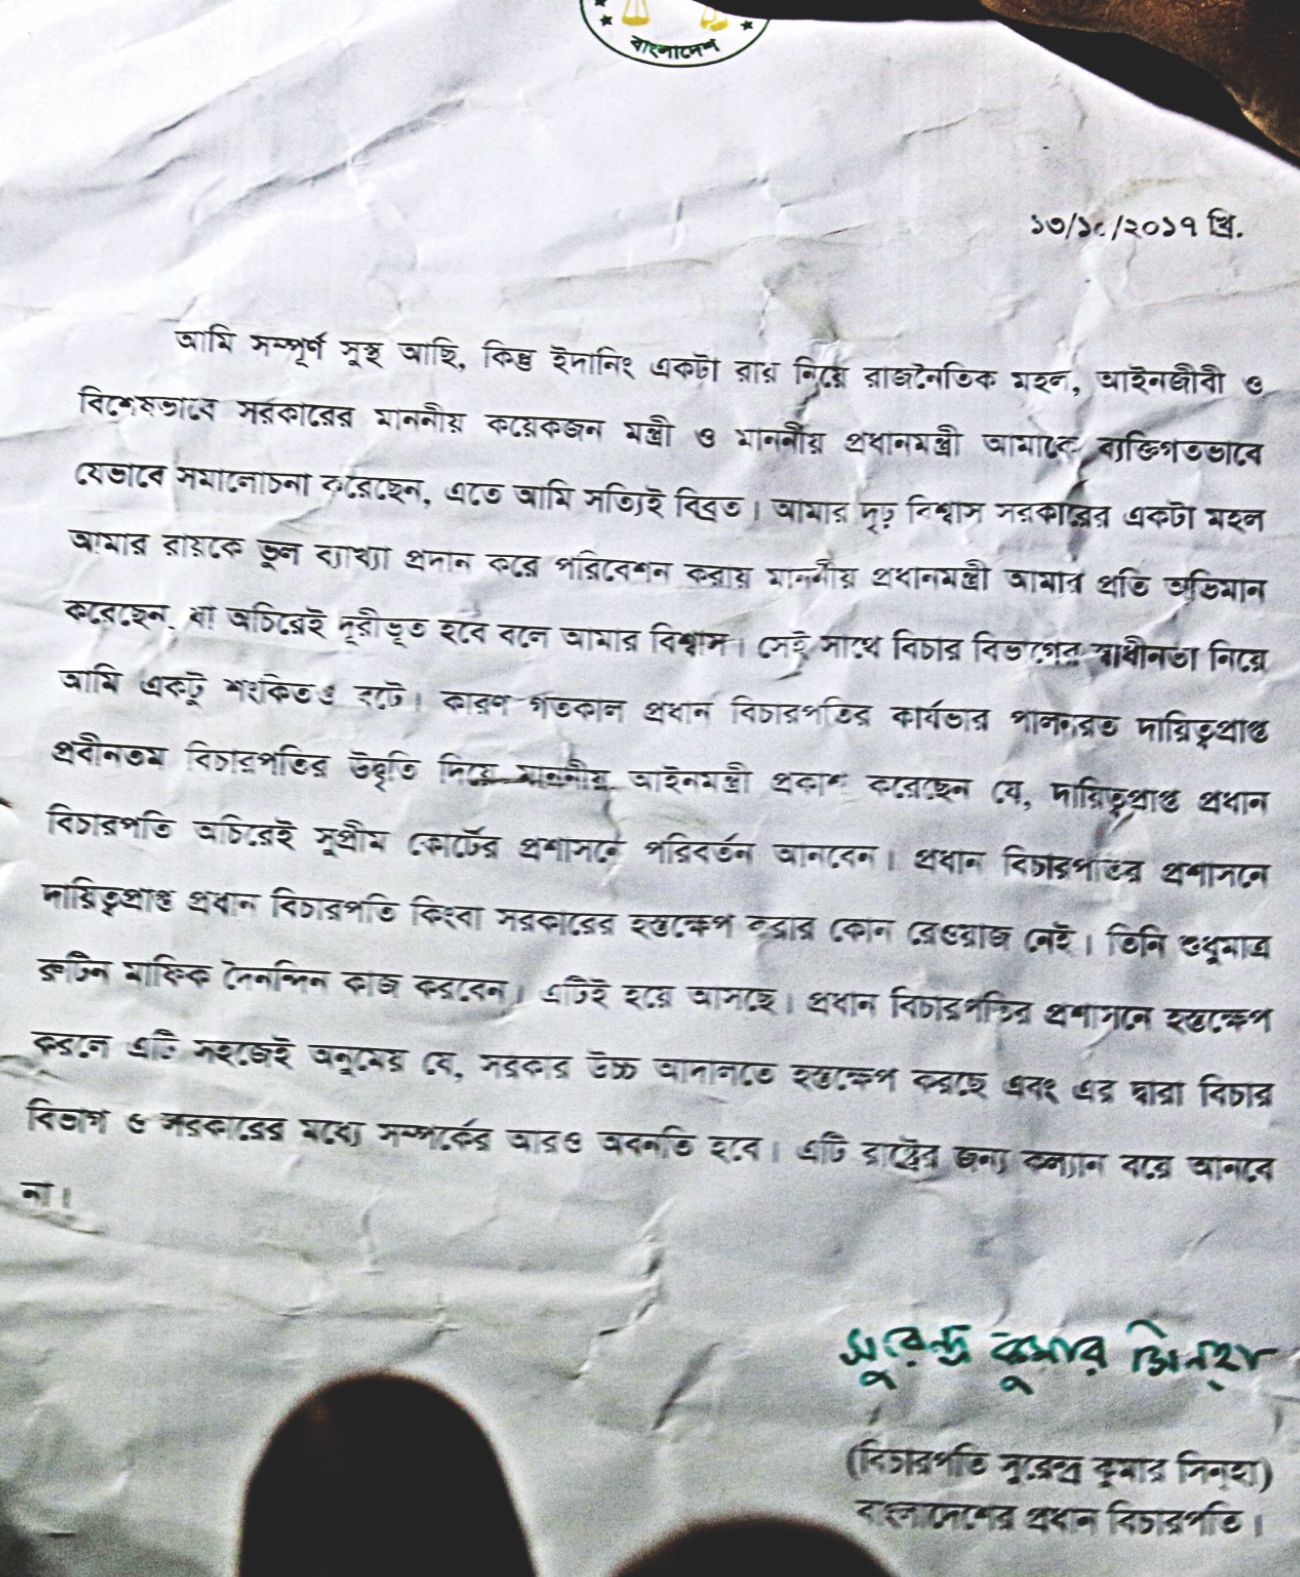 বাংলাদেশ
১৩/১০/২০১৭ খ্রি.
আমি সম্পূর্ণ সুস্থ আছি, কিন্তু ইদানিং একটা রায় নিয়ে রাজনৈতিক মহল, আইনজীবী ও
বিশেষভাবে সরকারের মাননীয় কয়েকজন মন্ত্রী ও মাননীয় প্রধানমন্ত্রী আমাকে ব্যক্তিগতভাবে
যেভাবে সমালোচনা করেছেন, এতে আমি সত্যিই বিব্রত। আমার দৃঢ় বিশ্বাস সরকারের একটা মহল
আমার রায়কে ভুল ব্যাখ্যা প্রদান করে পরিবেশন করায় মাননীয় প্রধানমন্ত্রী আমার প্রতি অভিমান
করেছেন, যা অচিরেই দূরীভূত হবে বলে আমার বিশ্বাস। সেই সাথে বিচার বিভাগের স্বাধীনতা নিয়ে
আমি একটু শংকিতও বটে। কারণ গতকাল প্রধান বিচারপতির কার্যভার পালনরত দায়িত্বপ্রাপ্ত
প্রবীনতম বিচারপতির উদ্বৃতি দিয়ে মাননীয় আইনমন্ত্রী প্রকাশ করেছেন যে, দায়িত্বপ্রাপ্ত প্রধান
বিচারপতি অচিরেই সুপ্রীম কোর্টের প্রশাসনে পরিবর্তন আনবেন। প্রধান বিচারপতির প্রশাসনে
দায়িত্বপ্রাপ্ত প্রধান বিচারপতি কিংবা সরকারের হস্তক্ষেপ করার কোন রেওয়াজ নেই। তিনি শুধুমাত্র
রুটিন মাফিক দৈনন্দিন কাজ করবেন। এটিই হয়ে আসছে। প্রধান বিচারপতির প্রশাসনে হস্তক্ষেপ
করলে এটি সহজেই অনুমেয় যে, সরকার উচ্চ আদালতে হস্তক্ষেপ করছে এবং এর দ্বারা বিচার
বিভাগ ও সরকারের মধ্যে সম্পর্কের আরও অবনতি হবে। এটি রাষ্ট্রের জন্য কল্যান বয়ে আনবে
না।
সুরেন্দ্র কুমার সিনহা
(বিচারপতি সুরেন্দ্র কুমার সিন্‌হা)
বাংলাদেশের প্রধান বিচারপতি।